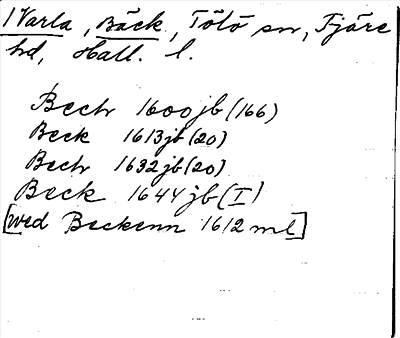 1 Varla, Bäck, Tölö sn, Fjäre
hd, Hall. l.
Bech 1600 jb (166)
Beck 1613 jb (20)
Bech 1632 jb (20)
Beck 1644 jb (I)
[wed Beckenn 1612 ml]